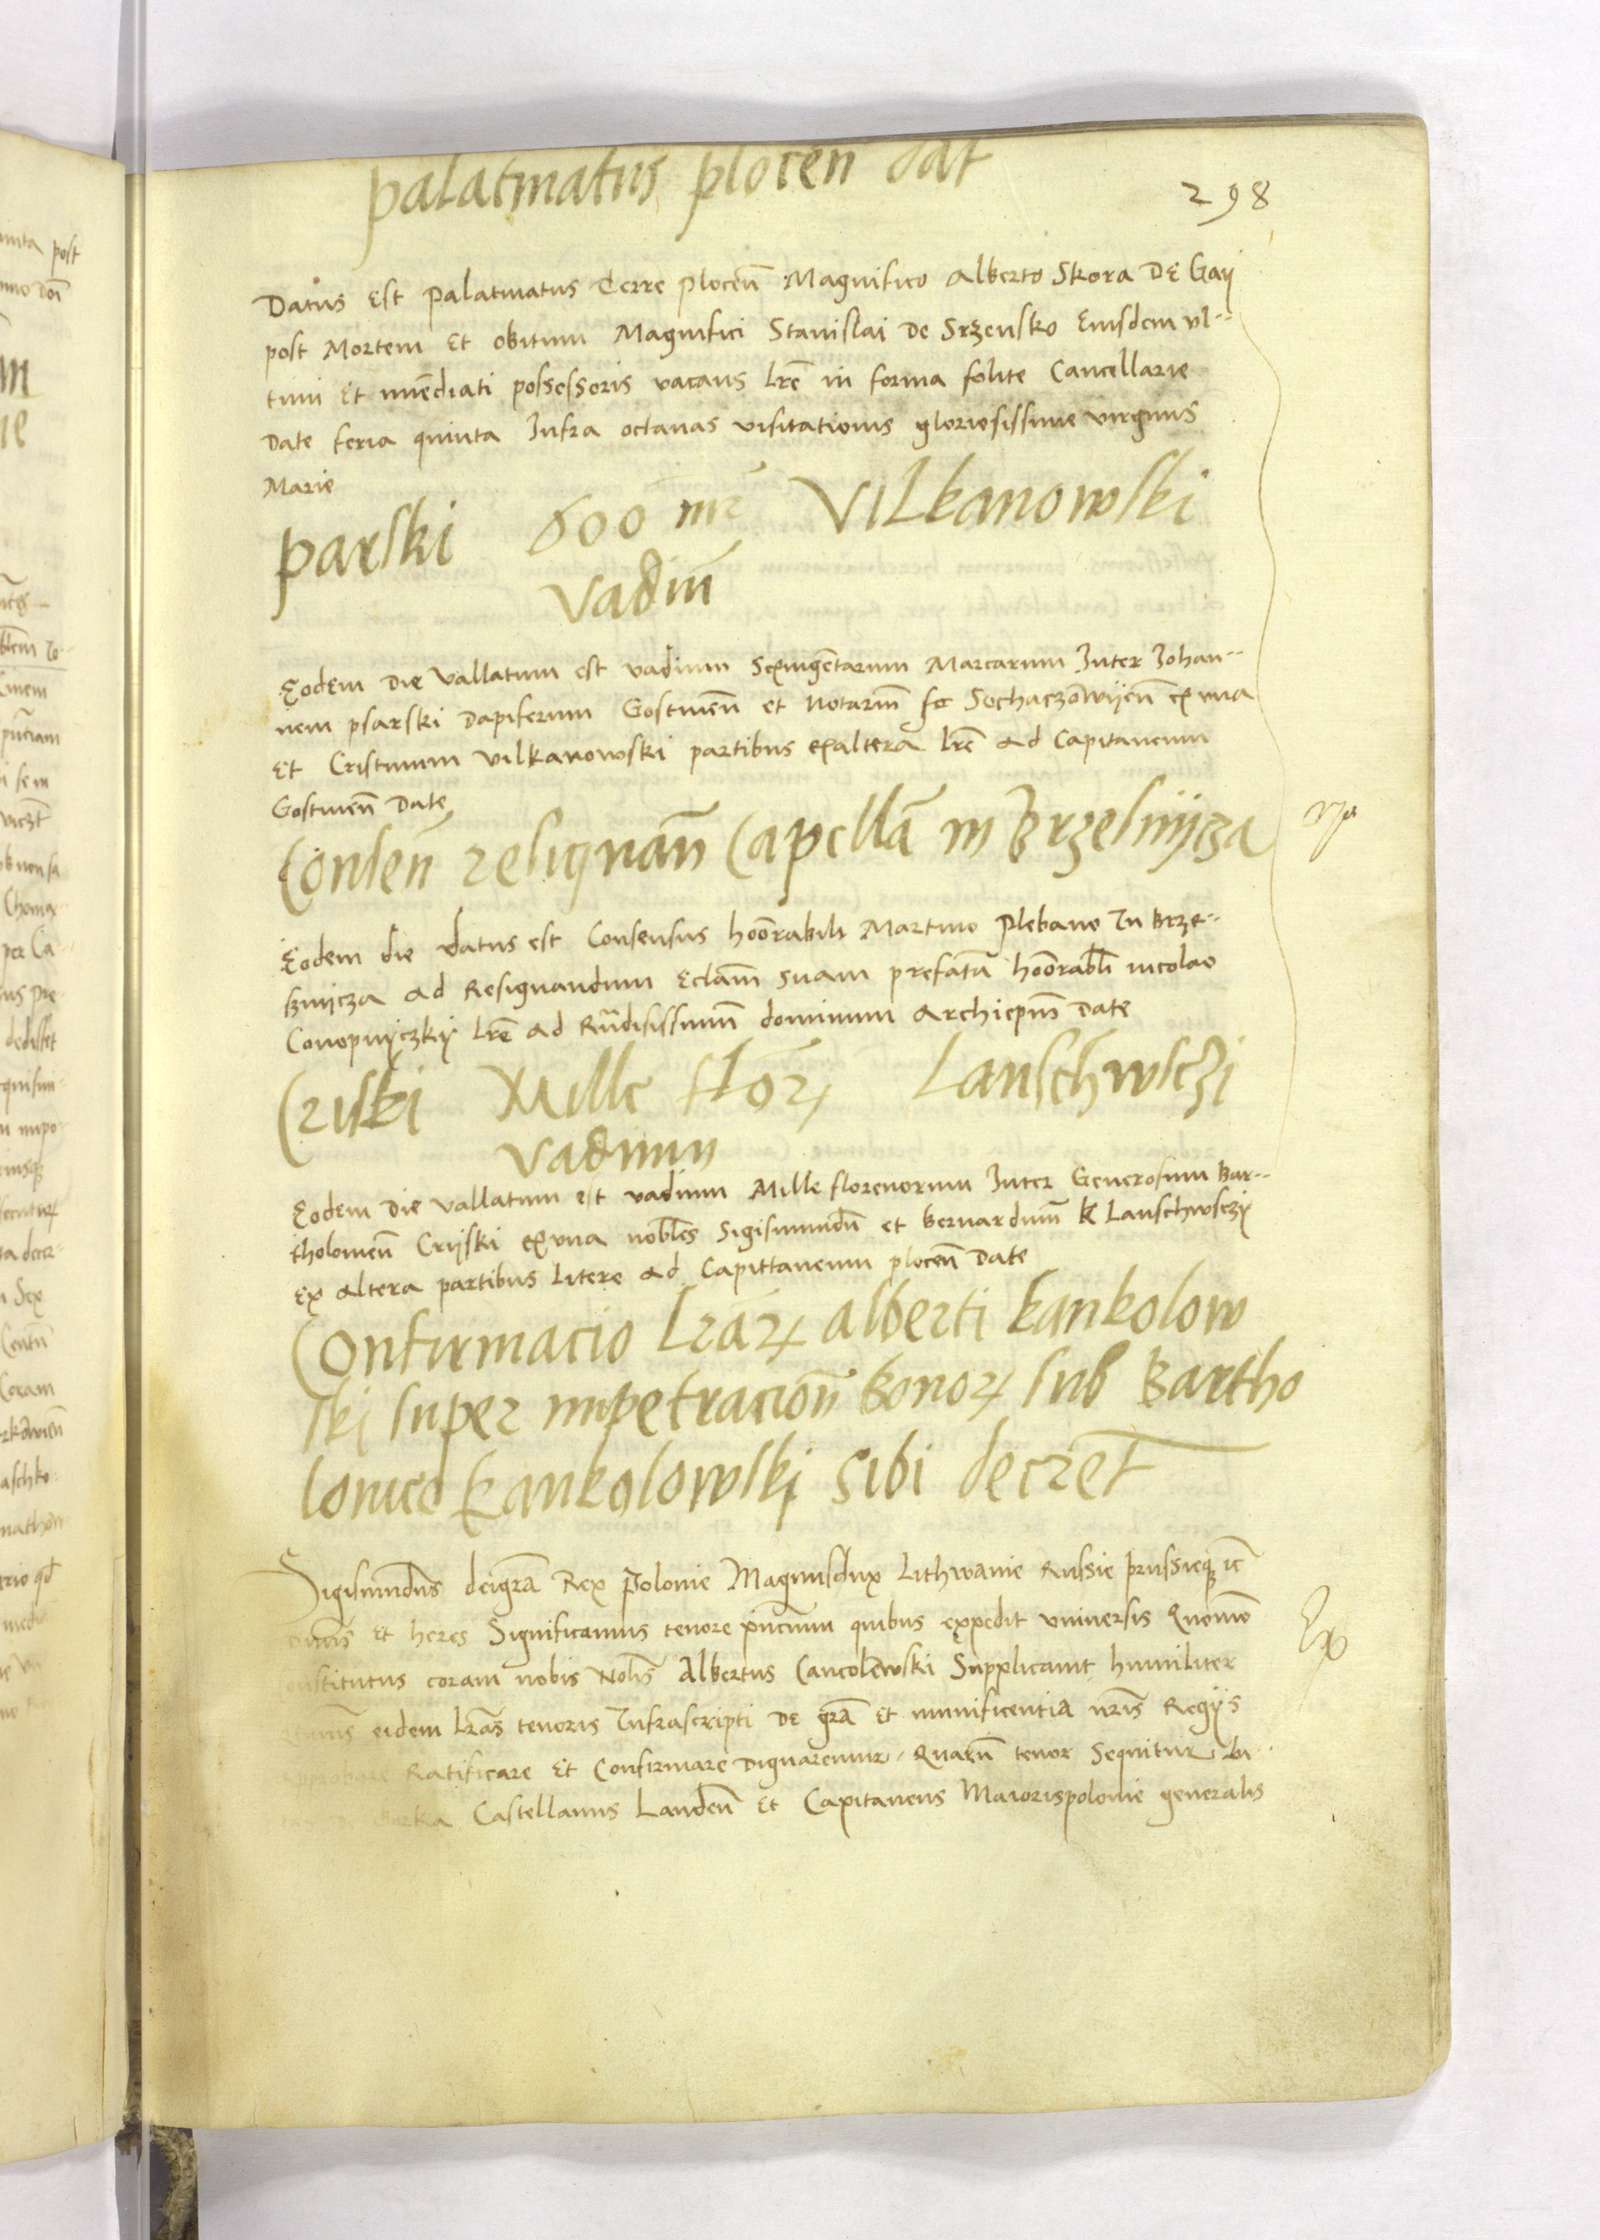 palatinatus plocen dat
298
Datus est palatinatus Terre plocen̄ Magnifico Alberto Skora De Gaÿ
post Mortem Et obitum Magnifici Stanislai De Srzensko Eiusdem ul-
timi Et immēdiati possessoris vacans lrē in forma solite Cancellarie
Date feria quinta Infra octavas visitationis gloriosissime virginis
Marie
parski 600 mr̄ Vilkanowski
Vadiū
Eodem Die Vallatum est vadium Sexingētarum Marcarum Inter Johan-
nem psarski Dapiferum Gostinen̄ et Notariū Sochaczowÿen̄ ex una
Et Cristinum Vilkanowski partibus exaltera lrē Ad Capitaneum
Gostinen̄ Date
Consen̄ resignan̄ Capellā in Brzesnÿcza
Eodem die Datus est Consensus honōrabili Martino Plebano In Brze-
sznÿcza Ad Resignandum Eclam̄ suam prefatā honōrabli nicolao
Conopnÿczkÿ lrē Ad Rn̄disissimum̄ dominum Archiepūm Date
Criski Mille flōrꝝ Lanschwsczi
Vadimm
Eodem Die Vallatum est vadium Mille florenorum Inter Generosum Bar-
tholomeū Crÿski exuna nobles Sigismundū et bernardum̄ Lanschwsczÿ
Ex Altera partibus Litere Ad Capittaneum plocen̄ Date
Confirmacio lrārꝝ alberti kankolow
ski super impetracionē bonorꝝ sub Bartho
lomeo kankolowski sibi decret
Sigismundūs deigrā Rex Polonie Magnusdux Lithwanie Russie prussieqꝫ ic̄
dnūs Et heres Significamus tenore pn̄cium quibus expedit universis Quomō
onstitutus coram nobis Nobīs Albertus Cancolewski Supplicavit humiliter
eidem lrās tenoris Infrascripti De grā Et munificentia nrīs Regÿs
Ratificare Et Confirmare Dignaremur. Quarū tenor Sequitur
Castellanus Landen̄ Et Capitaneus Maiorispolonie generalis